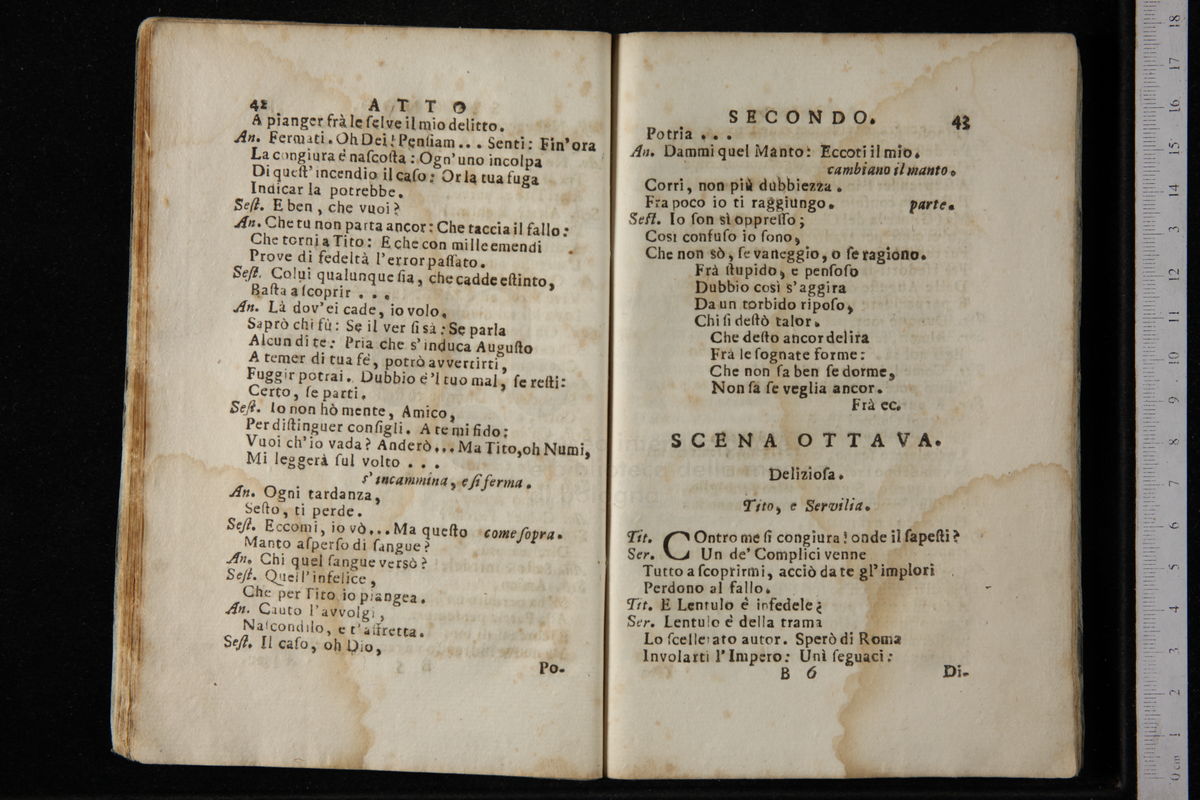 42 ATTO
A pianger frà le ſelve il mio delitto.
An. Fermati. Oh Dei! Penſiam... Senti: Fin'ora
La congiura é naſcoſta: Ogn'uno incolpa
Di queſt'incendio il caſo: Or la tua fuga
Indicar la potrebbe.
Seſt. E ben, che vuoi?
An. Che tu non parta ancor: Che taccia il fallo:
Che torni a Tito: E che con mille emendi
Prove di fedeltà l'error paſſato.
Seſt. Colui qualunque ſia, che cadde eſtinto,
Baſta a ſcoprir ...
An. Là dov'ei cade, io volo.
Saprò chi fù: Se il ver ſi sà: Se parla
Alcun di te: Pria che s'induca Auguſto
A temer di tua fé, potrò avvertirti,
Fuggir potrai. Dubbio é'l tuo mal, ſe reſti:
Certo, ſe parti.
Seſt. Io non hò mente, Amico,
Per diſtinguer conſigli. A te mi fido:
Vuoi ch'io vada? Anderò... Ma Tito, oh Numi,
Mi leggerà ſul volto ...
s'incammina, e ſi ferma.
An. Ogni tardanza,
Seſto, ti perde.
Seſt. Eccomi, io vò... Ma queſto come ſopra.
Manto aſperſo di ſangue?
An. Chi quel ſangue versò?
Seſt. Quell'infelice,
Che per Tito io piangea.
An. Cauto l'avvolgi,
Naſcondilo, e t'affretta.
Seſt. Il caſo, oh Dio,
Po-
SECONDO. 43
Potria ...
An. Dammi quel Manto: Eccoti il mio.
cambiano il manto.
Corri, non più dubbiezza.
Fra poco io ti raggiungo. parte.
Seſt. Io ſon sì oppreſſo;
Così confuſo io ſono,
Che non sò, ſe vaneggio, o ſe ragiono.
Frà ſtupido, e penſoſo
Dubbio così s'aggira
Da un torbido ripoſo,
Chi ſi deſtò talor.
Che deſto ancor delira
Frà le ſognate forme:
Che non ſa ben ſe dorme,
Non ſa ſe veglia ancor.
Frà ec.
SCENA OTTAVA.
Delizioſa.
Tito, e Servilia.
Tit. COntro me ſi congiura! onde il ſapeſti?
Ser. Un de' Complici venne
Tutto a ſcoprirmi, acciò da te gl'implori
Perdono al fallo.
Tit. E Lentulo è infedele?
Ser. Lentulo è della trama
Lo ſcellerato autor. Sperò di Roma
Involarti l'Impero: Unì ſeguaci:
B 6 Di-